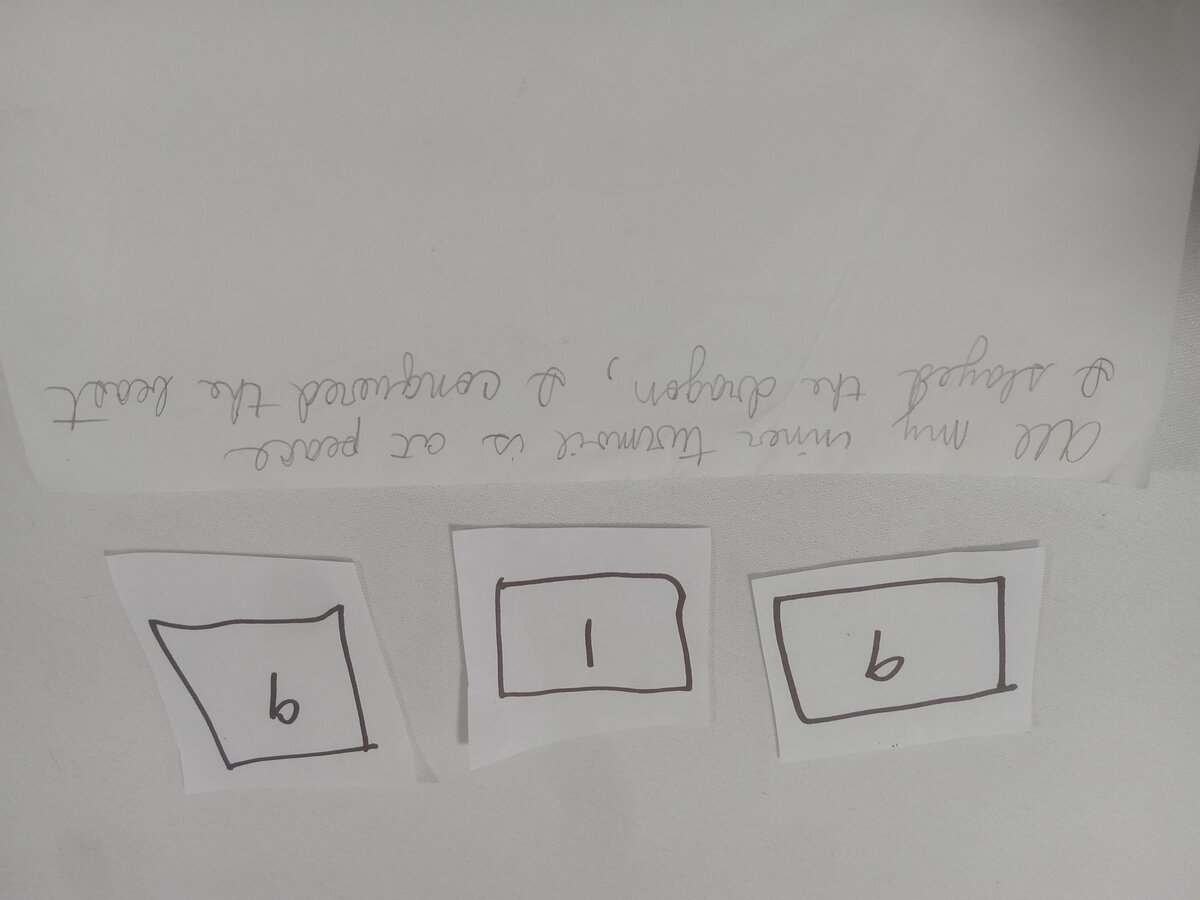 9 1 9
All my inner turmoil is at peace
I slayed the dragon, I conquered the beast